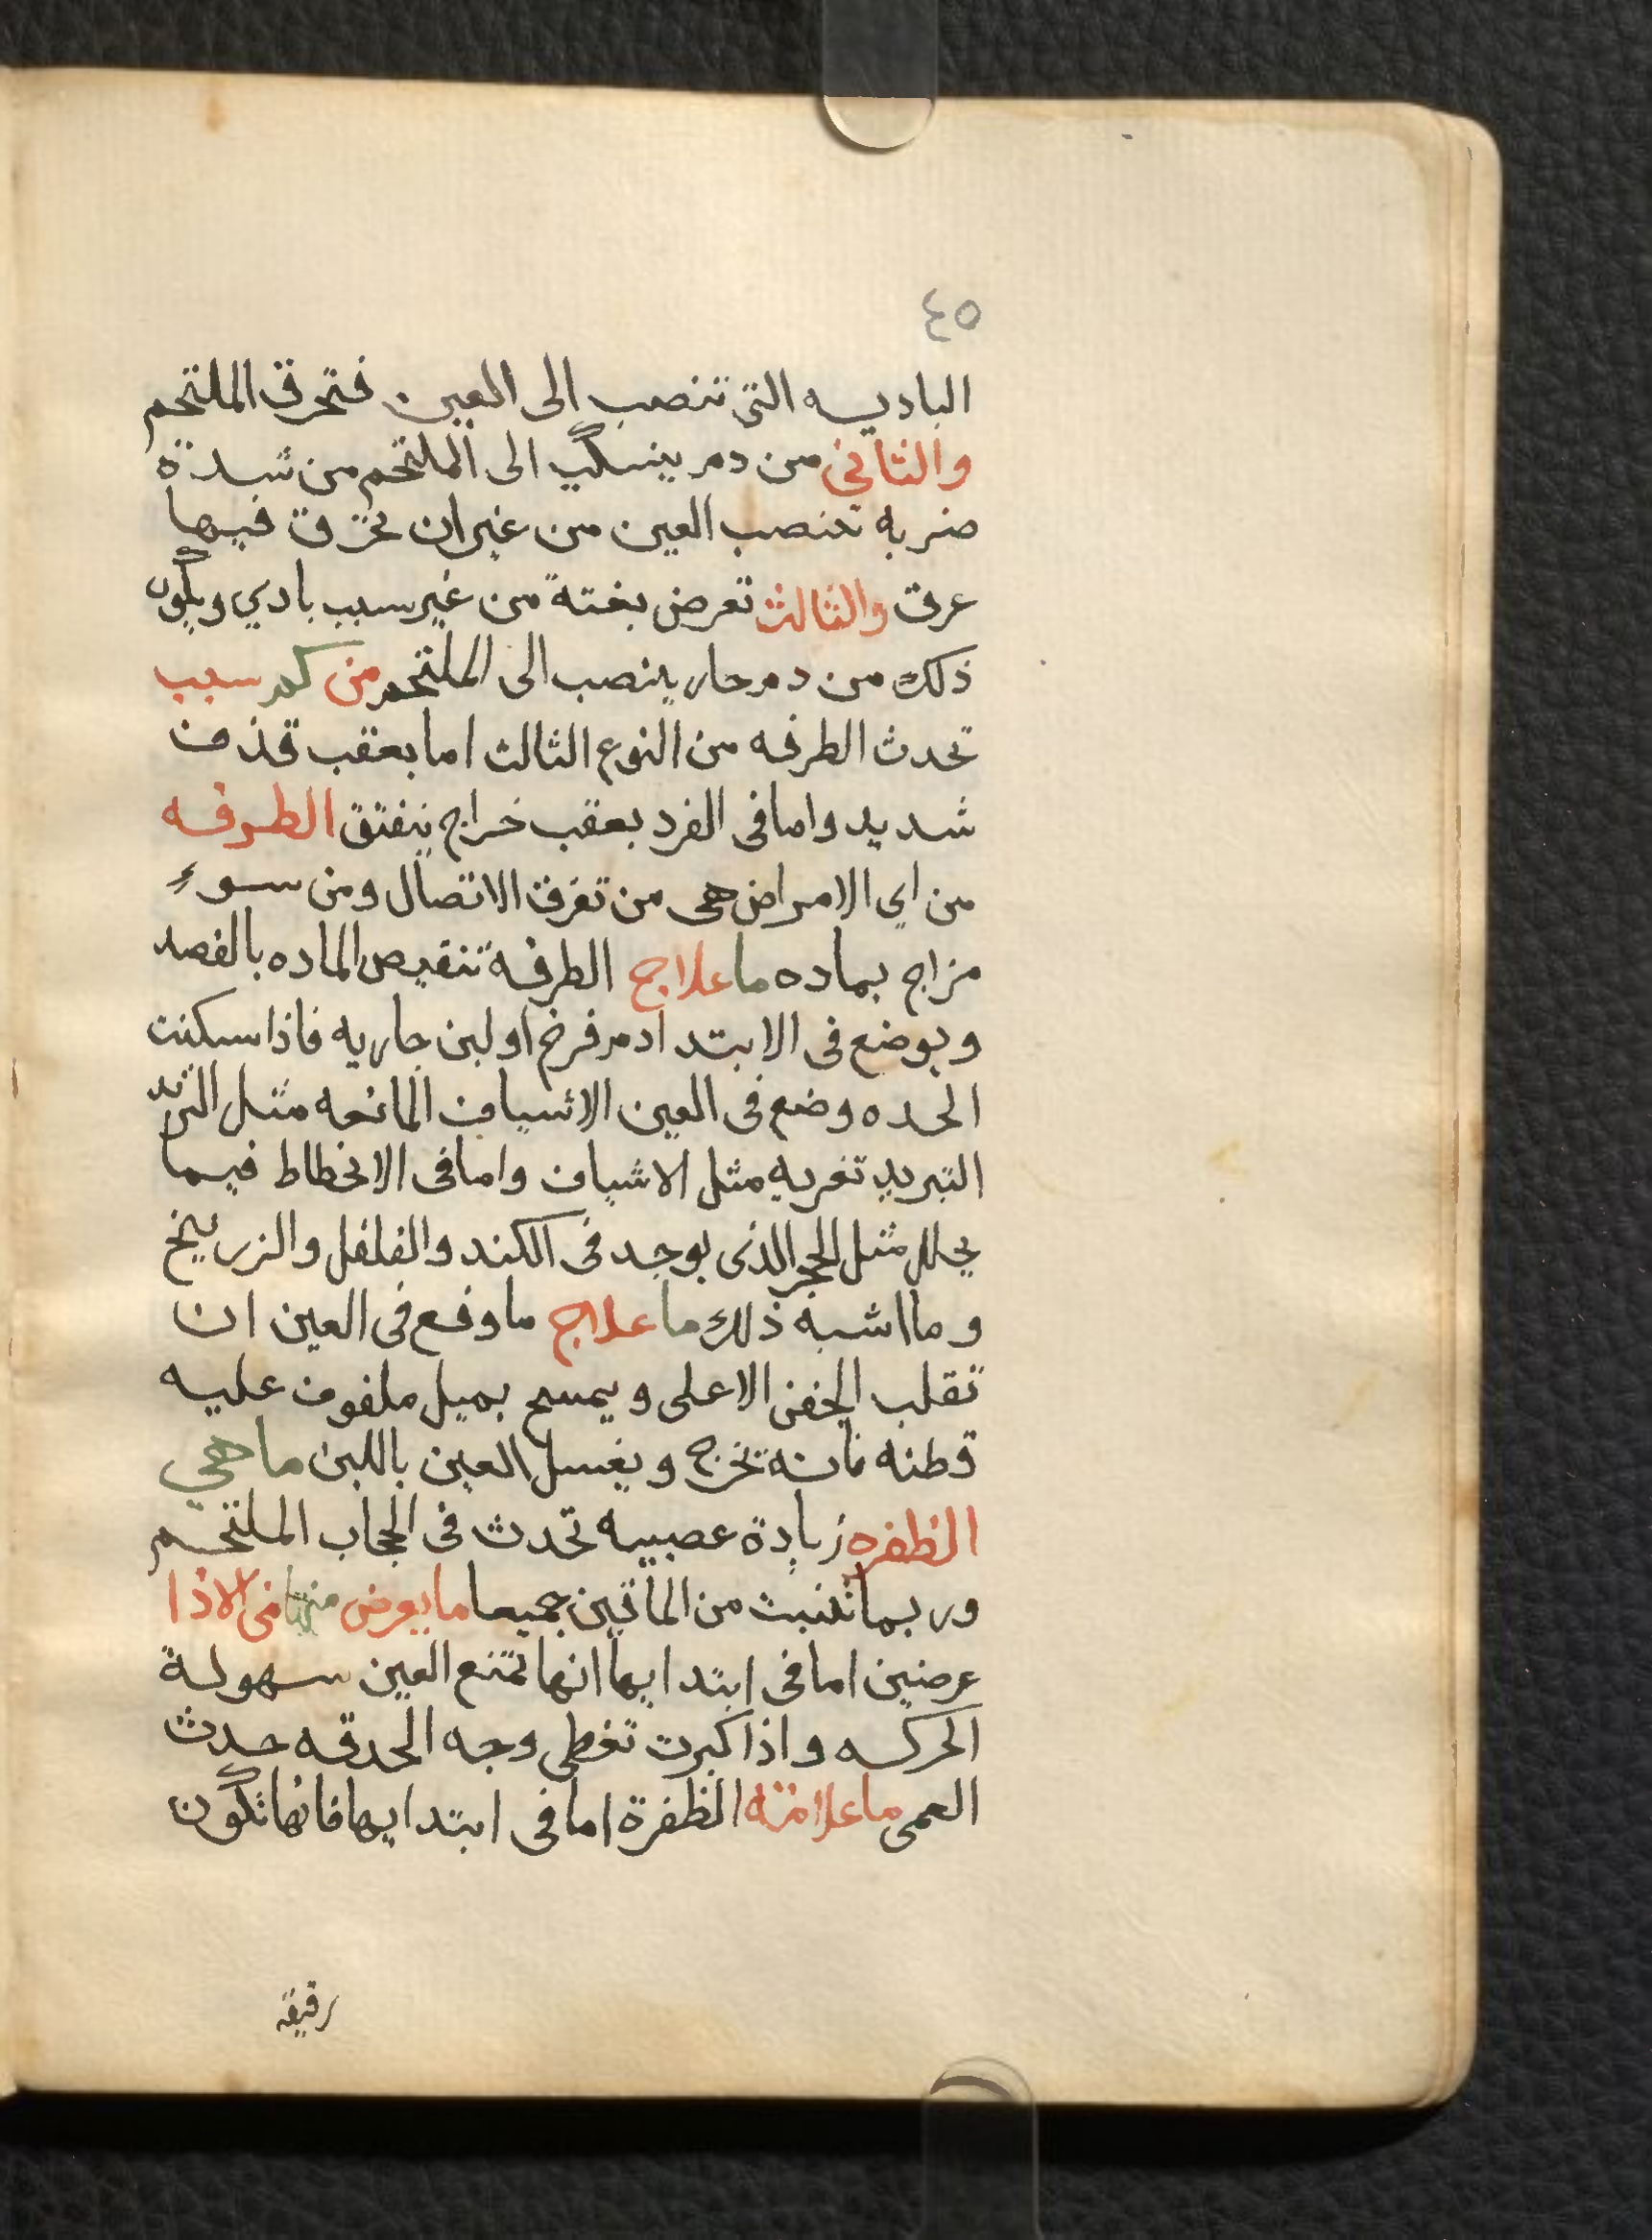 ٤٥
الباديه التى تنصب الى العين فتحرق الملتحم
والثاني من دم ينسكب الى الملتحم من شدة
ضربه تنصب العين من غير ان تخرق فيها
عرق والثالث تعرض بغتة من غير سبب بادي ويكون
ذلك من دم حار ينصب الى الملتحم من كم سبب
تحدث الطرفه من النوع الثالث اما بعقب قذف
شديد واما فى الفرد بعقب خراج ينفتق الطرفه
من اي الامراض هى من تفرق الاتصال ومن سوء
مزاج بماده ما علاج الطرفة تنقيص الماده بالفصد
ويوضع فى الابتدا دم فرخ او لبن جاريه فاذا سكنت
الحده وضع فى العين الاشياف المانعه مثل
التبريد تغريه مثل الاشياف واما فى الانحطاط فيما
يحلل مثل الحجر الذى يوجد فى الكند والفلفل والزرنيخ
وما اشبه ذلك ما علاج ما وقع فى العين ان
تقلب الجفن الاعلى ويمسح بميل ملفوف عليه
قطنه فانه تخرج ويغسل العين باللبن ما هي
الظفره زيادة عصبيه تحدث فى الحجاب الملتحم
وربما تنبت من الماقين جميعا ما يعرض منها فى الاذا
عرضين اما فى ابتدايها انها تمتنع العين سهولة
الحركه واذا كبرت تغطى وجه الحدقه حدث
العمى ما علامته الظفرة اما فى ابتدايها فانها تكون
رقيقه